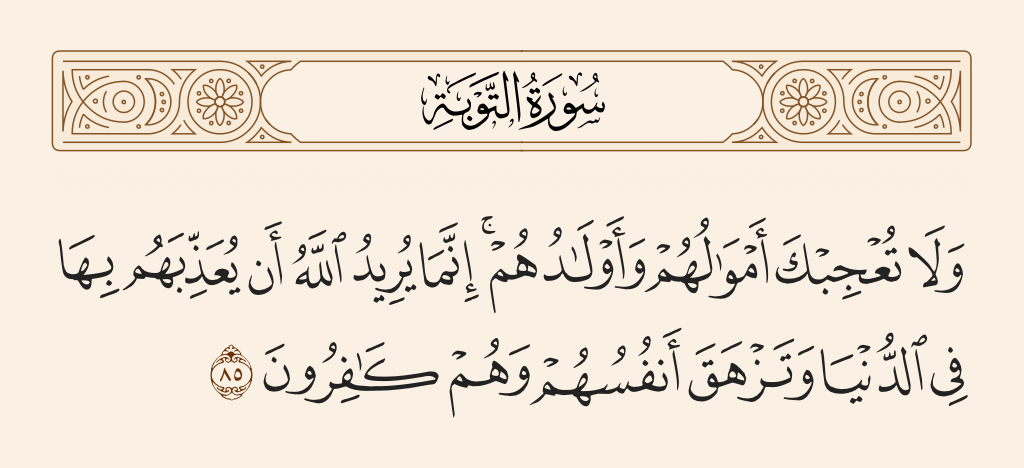 سُورَةُ التَّوْبَةِ
وَلَا تُعْجِبْكَ أَمْوَٰلُهُمْ وَأَوْلَـٰدُهُمْ ۚ إِنَّمَا يُرِيدُ ٱللَّهُ أَن يُعَذِّبَهُم بِهَا
فِى ٱلدُّنْيَا وَتَزْهَقَ أَنفُسُهُمْ وَهُمْ كَـٰفِرُونَ ٨٥